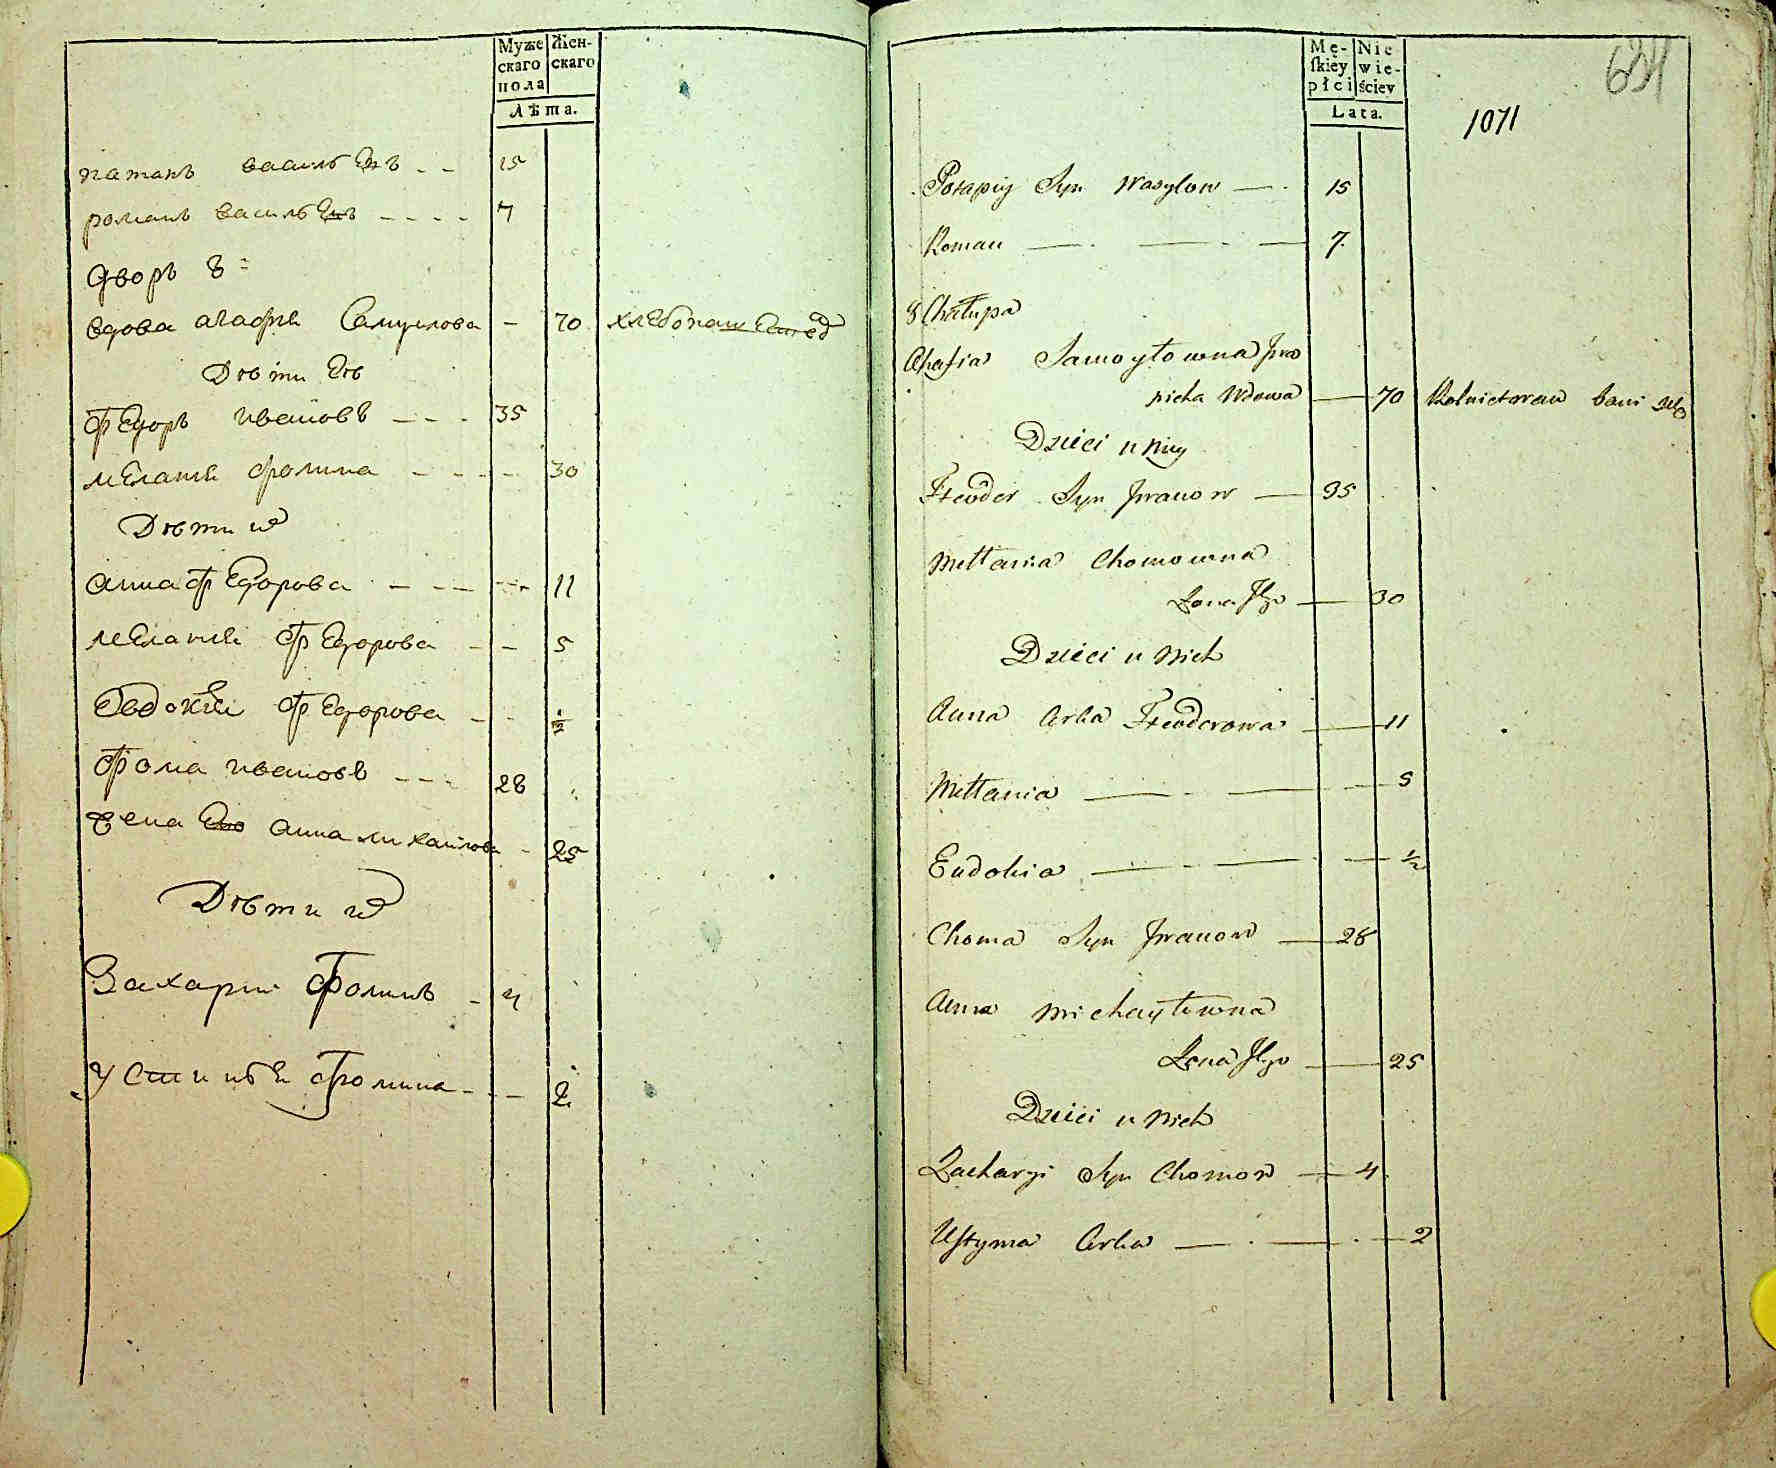 Муже
скаго
пола
Жен-
скаго
Лѣта.
патапъ василѣевъ - - 15
романъ василѣевъ - - - - 7
Дворъ 8
вдова агафия Самуилова - 70 хлебопашество
Дѣти Ев
Федоръ ивановъ - - - 35
мелания фомина - - - - 30
Дѣти их
анна Федорова - - - - - 11
мелания Федорова - - 5
Евдокия Федорова - - ½
Фома ивановъ - - - 28
жена Ево анна михайлова - 25
Дѣти их
Захарий Фоминъ - 4
Устинья Фомина - - - 2
Mę-
skiey
płci
Nie
wie-
ściey
Lata.
634
1071
Potapiy Syn Wasylow — 15
Roman — — — 7.
8 Chałupa
Ahafia Samoyłowna Iwa
nicha Wdowa — 70 Rolnictwem bawi się
Dzieci u niey
Fteodor Syn Iwanow — 35
Mełłania Chomowna
Żona Jego — 30
Dzieci u nich
Anna Corka Fteodorowa — 11
Mełłania — — — 5
Eudokia — — — ½
Choma Syn Iwanow — 28
Anna Michayłowna
Żona Jego — 25
Dzieci u nich
Zacharyi Syn Chomow — 4
Ustyma Corka — — — 2